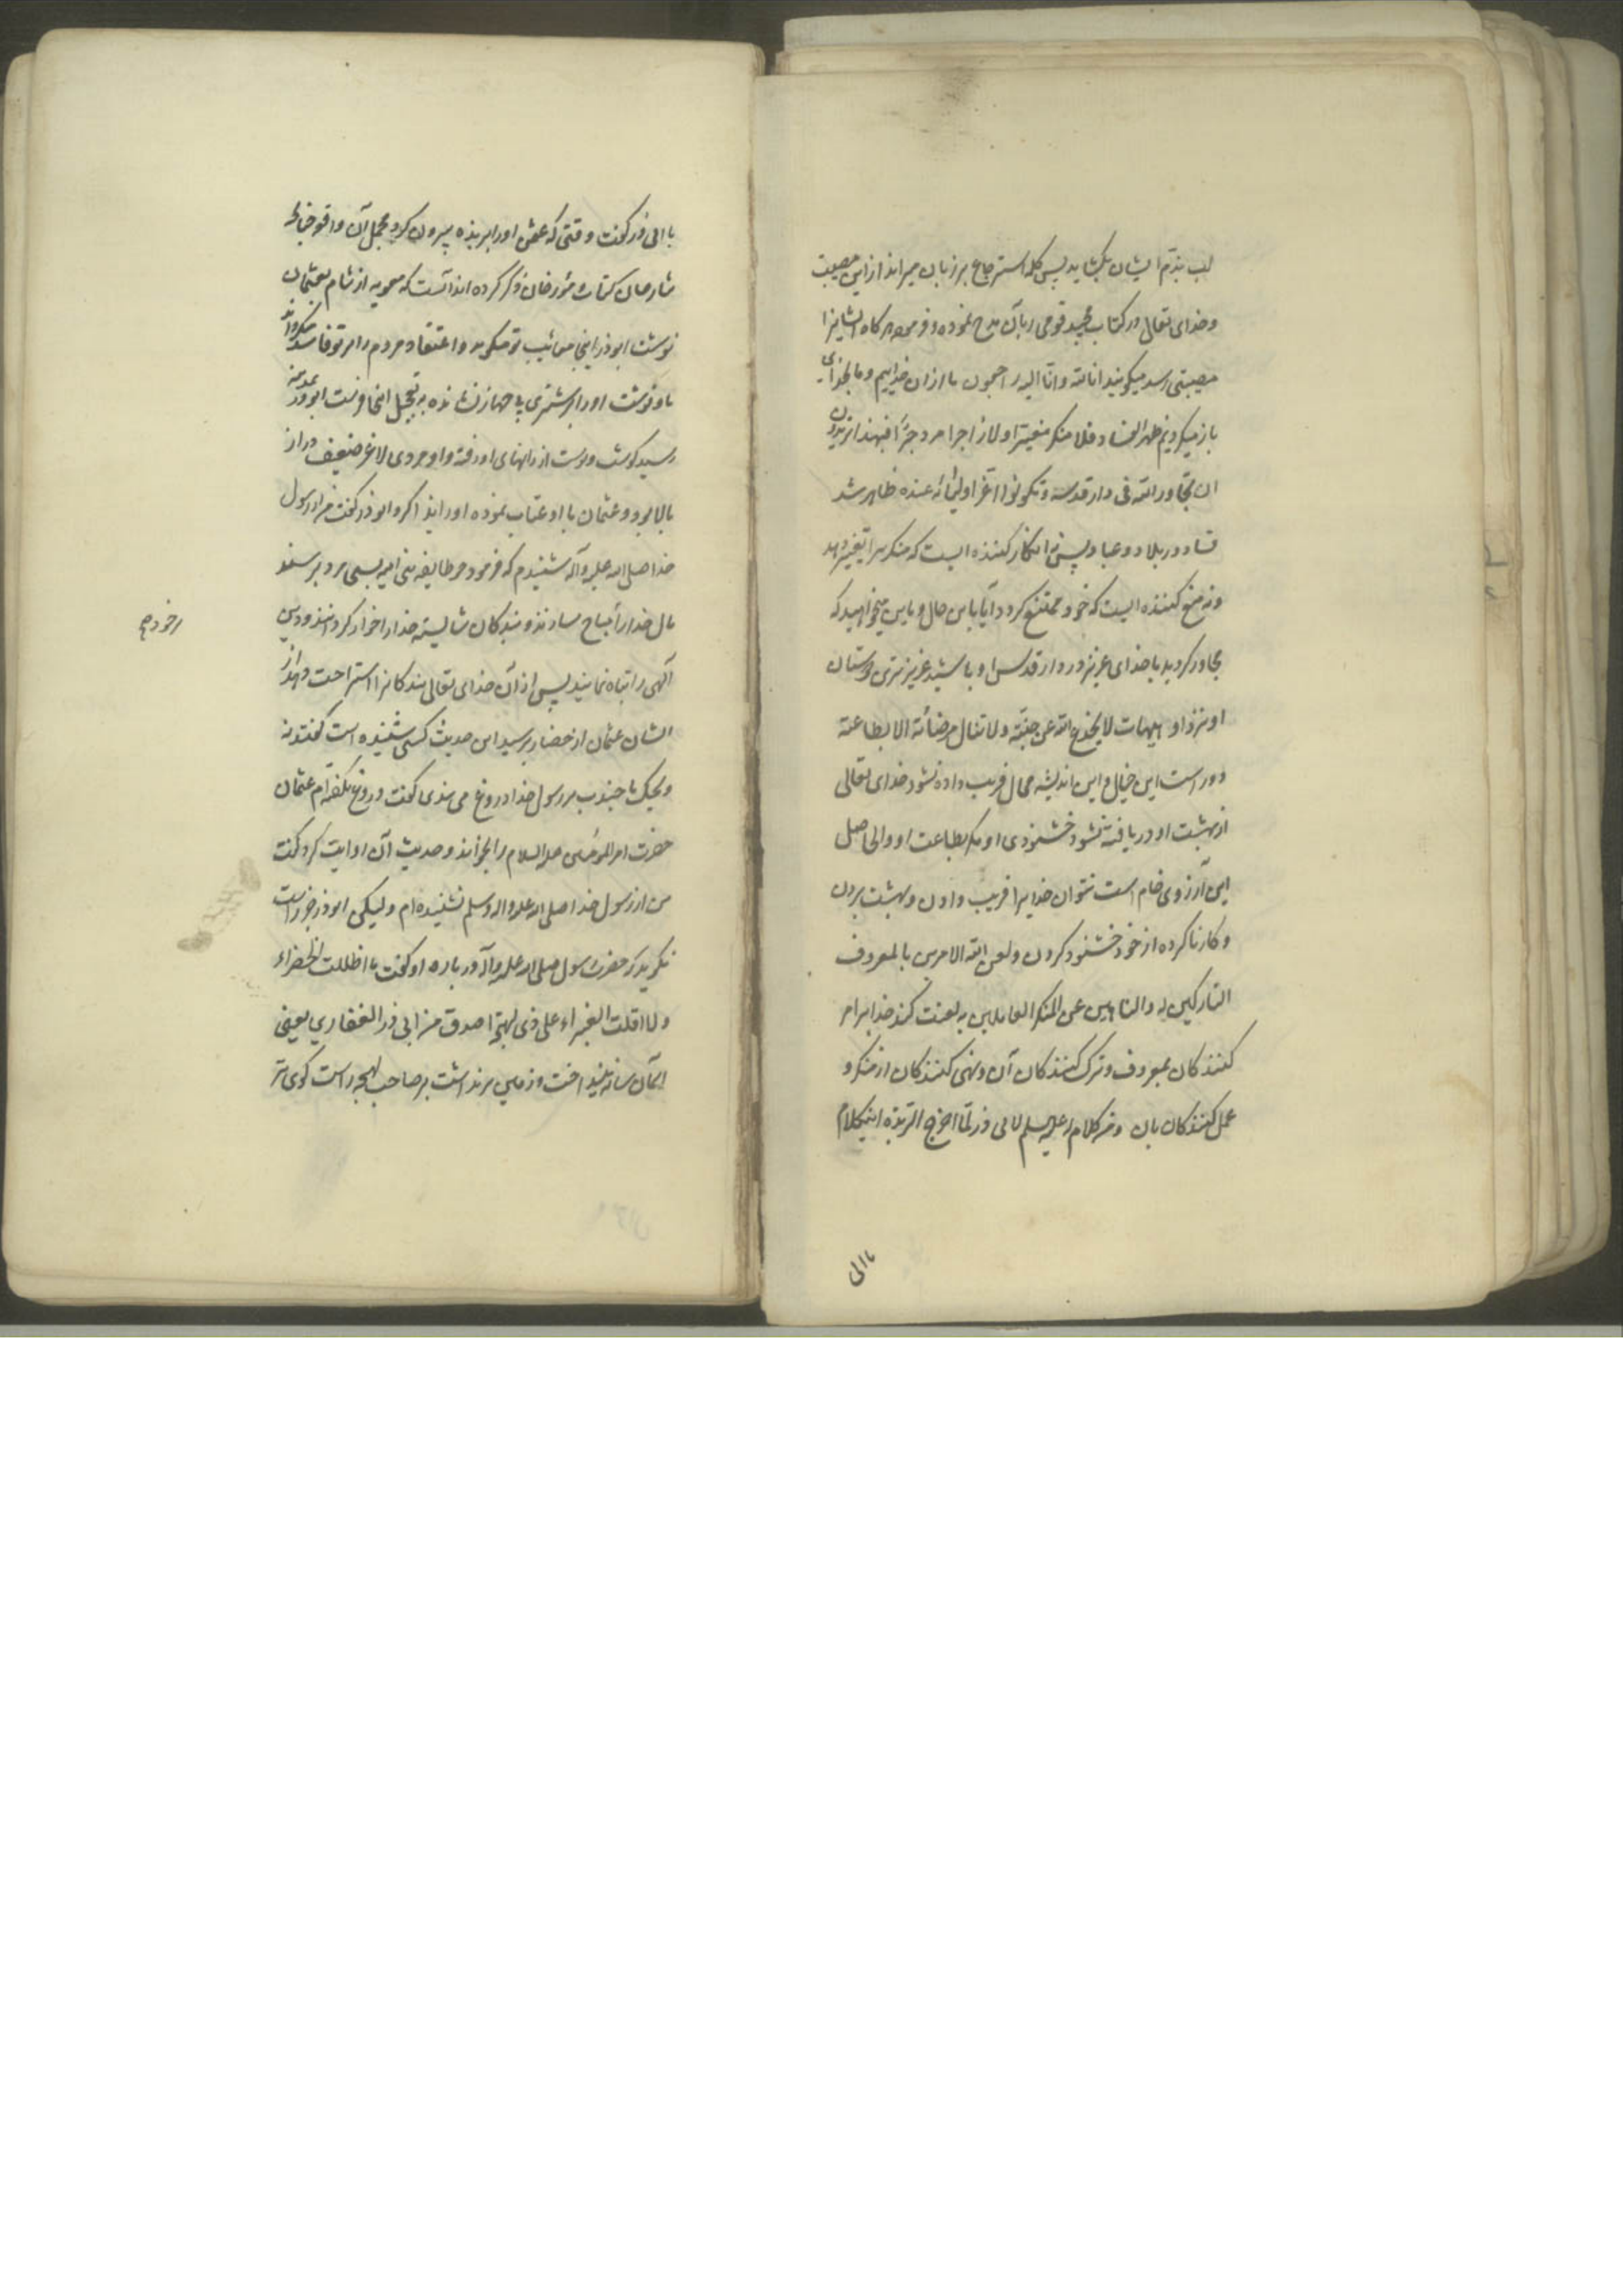 لب بذم ایشان بکشاید پس کلمه استرجاع بر زبان میراند ازین مصیبت
و خدای تعالی در کتاب مجید قومی را بآن مدح نموده و فرموده هرکاه ایشانرا
مصیبتی رسد میکویند انا لله و انا الیه راجعون ما از ان خداییم و ما بخدای
باز میکردیم ظهر الفساد فلا منکر مغیر و لا زاجر مزدجر افبهذا تریدون
ان تجاوروا الله فی دار قدسه و تکونوا اعز اولیائه عنده ظاهر شد
فساد در بلاد و عباد پس نه انکار کننده ایست که منکر را تغییر دهد
و نه منع کننده ایست که خود ممتنع کردد آیا باین حال و باین میخواهید که
مجاور کردید با خدای عزیز در دار قدس او و باشید عزیزترین دوستان
او نزد او هیهات لا یخدع الله عن جنته و لا تنال مرضاته الا بطاعته
دور است این خیال و این اندیشه محال فریب داده نشود خدای تعالی
از بهشت او و دریافته نشود خشنودی او مکر بطاعت او و الحاصل
این آرزوی خام است نتوان خدایرا فریب دادن و بهشت بردن
و کار ناکرده از خود خشنود کردن و لعن الله الامرین بالمعروف
التارکین له و الناهین عن المنکر العاملین به لعنت کند خدا بر امر
کنندکان بمعروف و ترک کنندکان آن و نهی کنندکان از منکر و
عمل کنندکان بان و من کلام له علیه السلم لابی ذر لما اخرج الی الربذه اینکلام
باابی
با ابی ذر کفت وقتی که عثمن او را بربذه بیرون کرد و مجمل آن واقعه چنانکه
شارحان کتاب و مؤرخان ذکر کرده اند آنست که معویه از شام بعثمان
نوشت ابوذر اینجا معائب تو میکوید و اعتقاد مردم را بر تو فاسد میکرداند
باو نوشت او را بر شتری بی جهاز نشانده به تعجیل اینجا فرست ابوذر بمدینه
رسید کوشت و پوست از رانهای او رفته و او مردی لاغر ضعیف دراز
بالا بود و عثمان با او عتاب نموده او را ایذا کرد ابوذر کفت من از رسول
خدا صلی الله علیه وآله شنیدم که فرمود هر کاه طایفه بنی امیه بسی مرد برسند
مال خدا را مباح سازند و بندکان شایسته خدا را خوار کردانند و دین
آلهی را تباه نمایند پس از آن خدای تعالی بندکانرا استراحت دهد از
ایشان عثمان از حضار پرسید این حدیث کسی شنیده است کفتند نه
ویحک یا جندب بر رسول خدا دروغ می بندی کفت دروغ نکفته ام عثمان
حضرت امیر المؤمنین علیه السلام را بخواند و حدیث آن روایت کرد کفت
من از رسول خدا صلی الله علیه واله وسلم نشنیده ام و لیکن ابوذر جز راست
نکوید که حضرت رسول صلی الله علیه وآله در باره او کفت ما اظلت الخضراء
و لا اقلت الغبراء علی ذی لهجة اصدق من ابی ذر الغفاری یعنی
آسمان سایه نینداخت و زمین برنداشت بر صاحب لهجه راست کوی تر